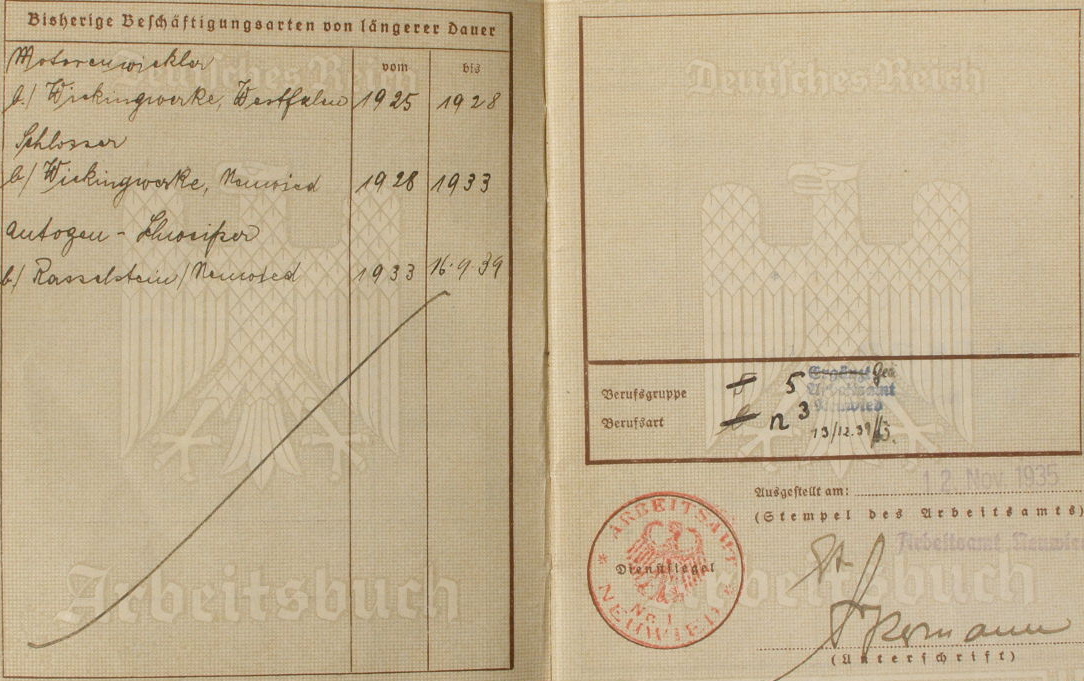 Bisherige Beschäftigungsarten von längerer Dauer
vom bis
Motorenwickler
b/ Wickingwerke, Westfalen 1925 1928
Schlosser
b/ Wickingwerke, Neuwied 1928 1933
Autogen -
b/ Rasselstein/Neuwied 1933 16.9.39
Deutsches Reich
Arbeitsbuch
Deutsches Reich
Berufsgruppe 5
Berufsart n 3
Ergänzt
Arbeitsamt
Neuwied
13/12.39
Ausgestellt am: 12. Nov. 1935
(Stempel des Arbeitsamts)
Arbeitsamt Neuwied
ARBEITSAMT
Dienstsiegel
No 1
NEUWIED
Arbeitsbuch
(Unterschrift)